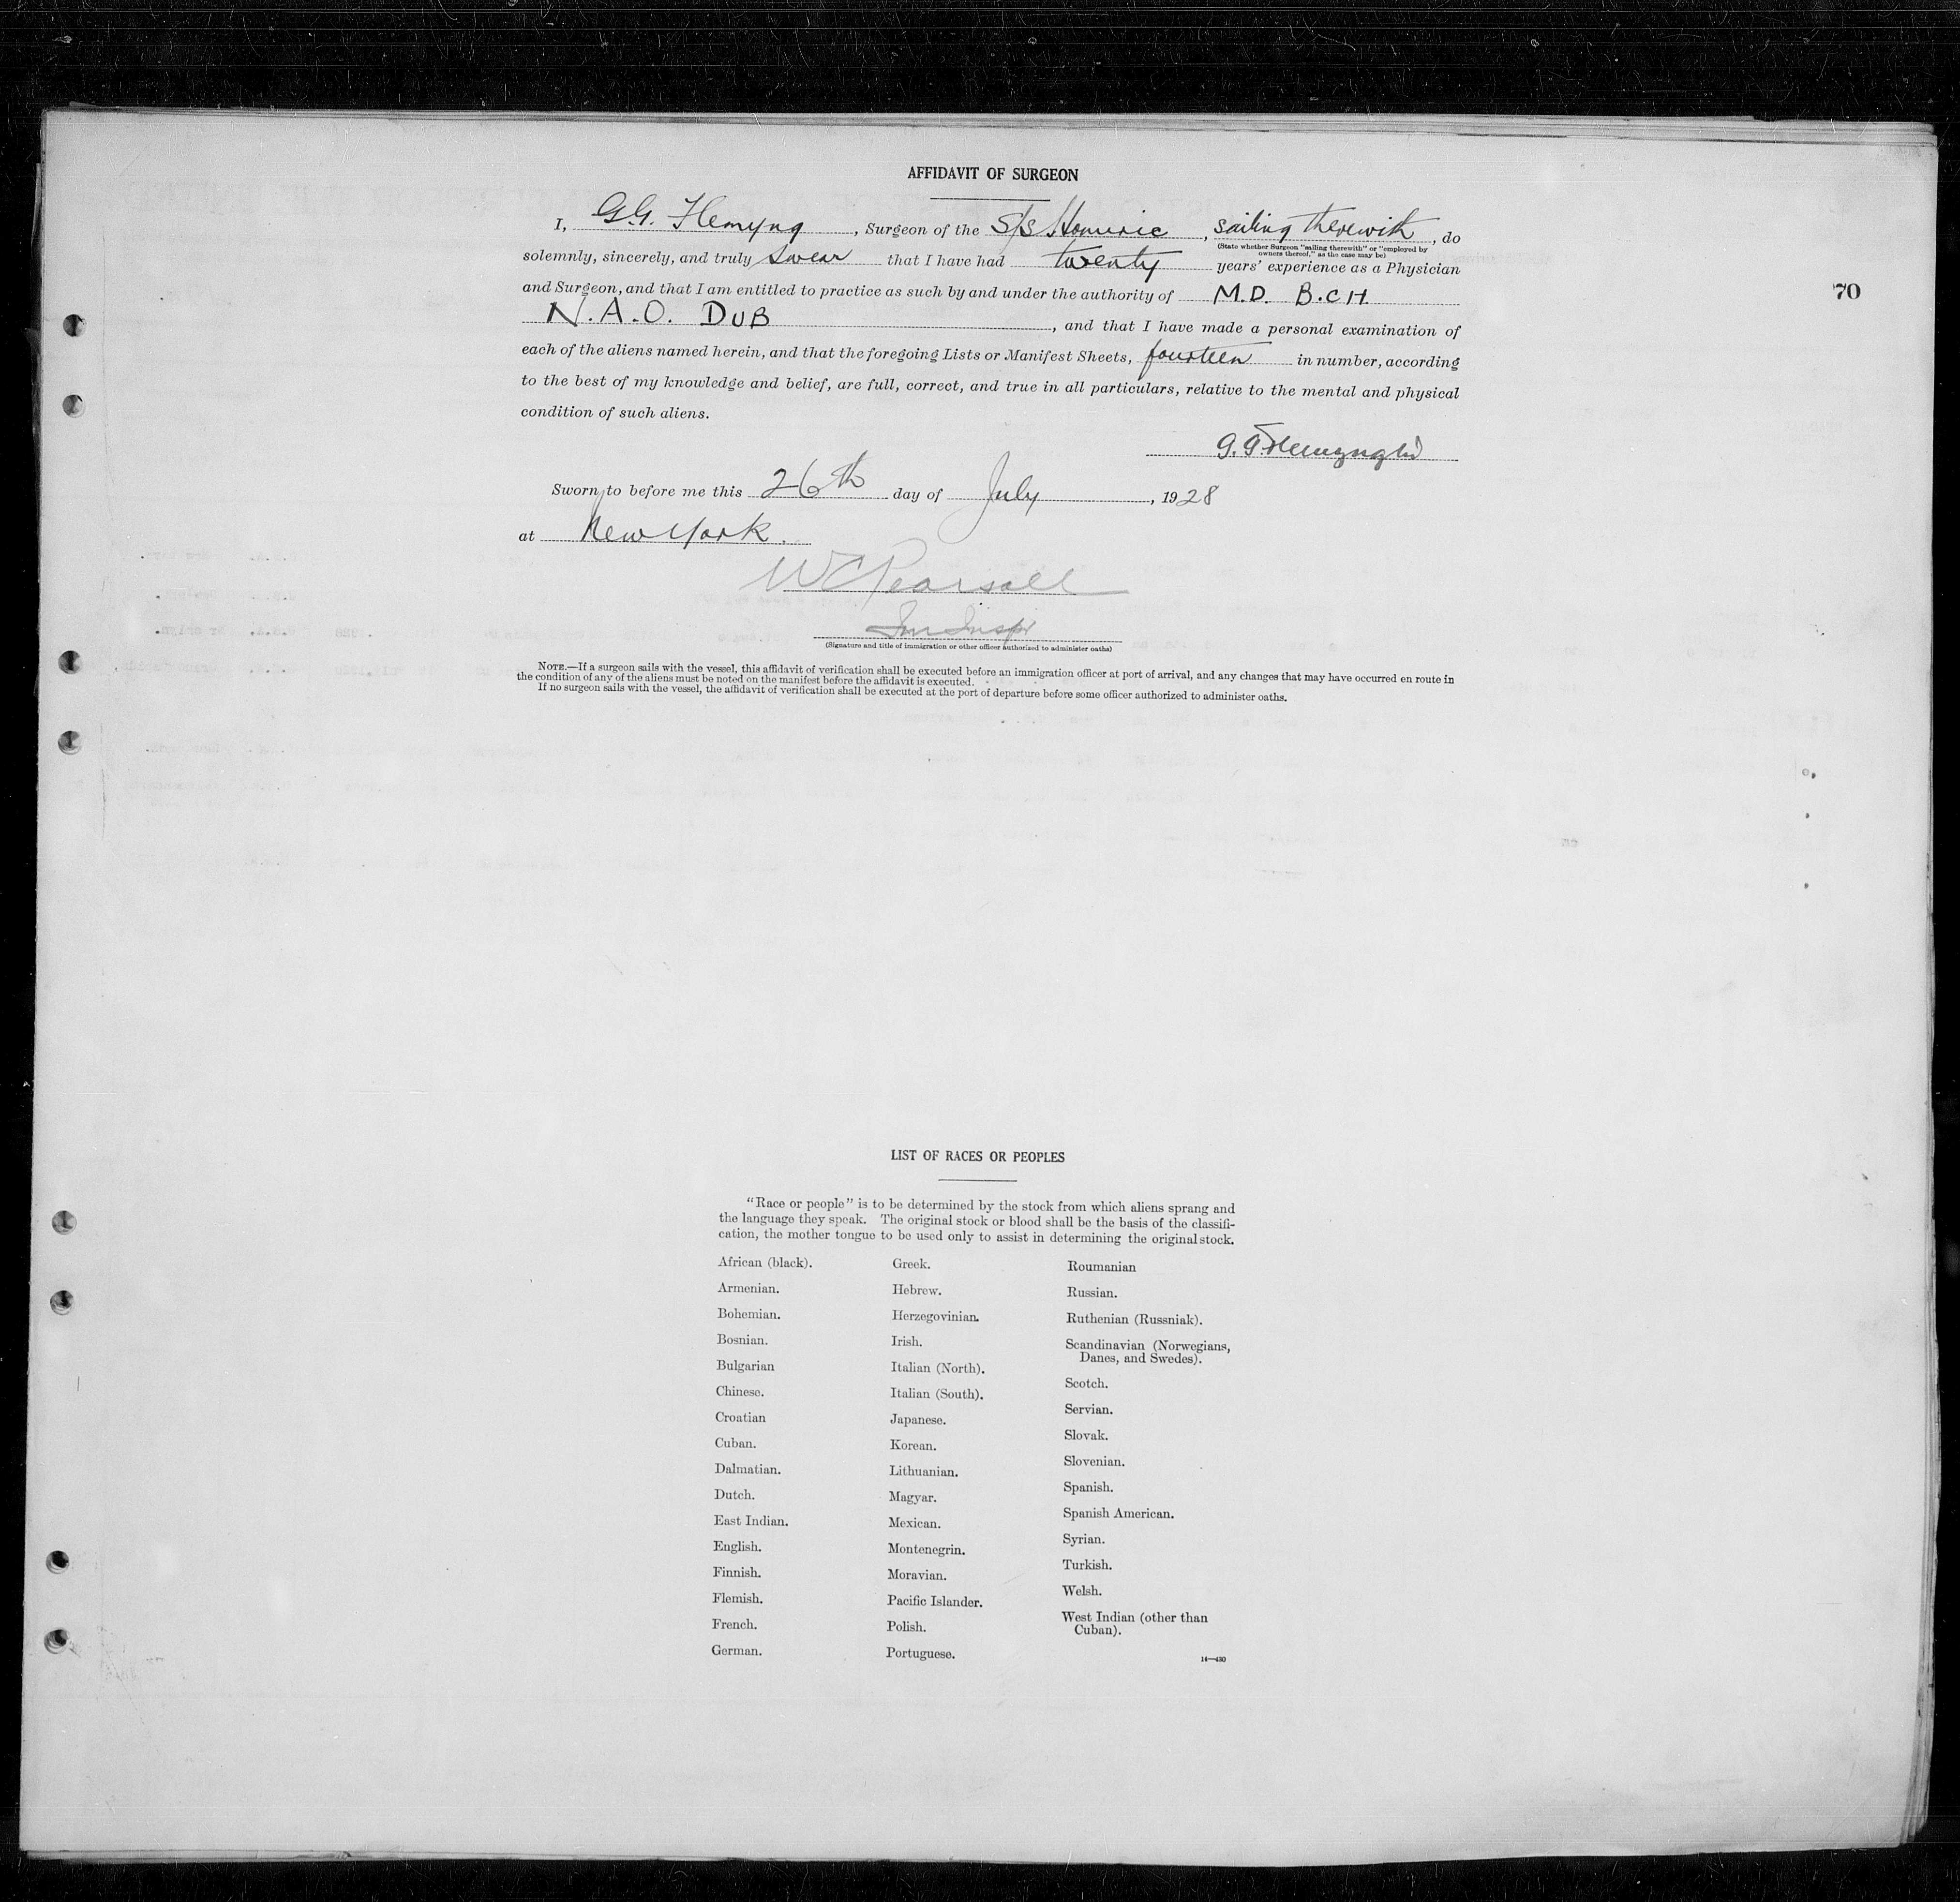 AFFIDAVIT OF SURGEON
I, G.G. Flemyng, Surgeon of the S/S Homeric, sailing therewith, do
(State whether Surgeon "sailing therewith" or "employed by
owners thereof," as the case may be)
solemnly, sincerely, and truly swear that I have had twenty years' experience as a Physician
and Surgeon, and that I am entitled to practice as such by and under the authority of M.D. B.CH.
N.A.O. DUB, and that I have made a personal examination of
70
each of the aliens named herein, and that the foregoing Lists or Manifest Sheets, fourteen in number, according
to the best of my knowledge and belief, are full, correct, and true in all particulars, relative to the mental and physical
condition of such aliens.
G. G. Flemyng
Sworn to before me this 26th day of July, 1928
at New York.
W C Pearsall
Im Inspr
(Signature and title of immigration or other officer authorized to administer oaths)
NOTE.—If a surgeon sails with the vessel, this affidavit of verification shall be executed before an immigration officer at port of arrival, and any changes that may have occurred en route in
the condition of any of the aliens must be noted on the manifest before the affidavit is executed.
If no surgeon sails with the vessel, the affidavit of verification shall be executed at the port of departure before some officer authorized to administer oaths.
LIST OF RACES OR PEOPLES
"Race or people" is to be determined by the stock from which aliens sprang and
the language they speak. The original stock or blood shall be the basis of the classifi-
cation, the mother tongue to be used only to assist in determining the original stock.
African (black).
Armenian.
Bohemian.
Bosnian.
Bulgarian
Chinese.
Croatian
Cuban.
Dalmatian.
Dutch.
East Indian.
English.
Finnish.
Flemish.
French.
German.
Greek.
Hebrew.
Herzegovinian.
Irish.
Italian (North).
Italian (South).
Japanese.
Korean.
Lithuanian.
Magyar.
Mexican.
Montenegrin.
Moravian.
Pacific Islander.
Polish.
Portuguese.
Roumanian
Russian.
Ruthenian (Russniak).
Scandinavian (Norwegians,
Danes, and Swedes).
Scotch.
Servian.
Slovak.
Slovenian.
Spanish.
Spanish American.
Syrian.
Turkish.
Welsh.
West Indian (other than
Cuban).
14—430